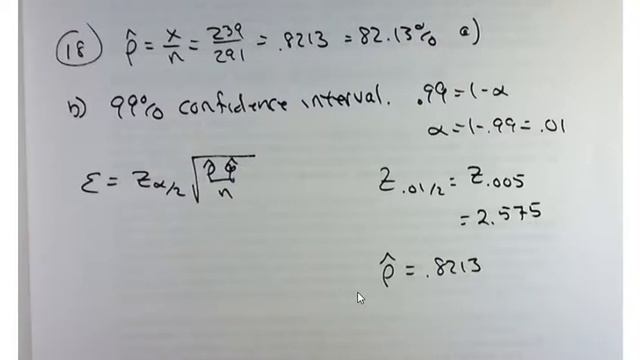 18 p̂ = x/n = 239/291 = .8213 = 82.13% a)
b) 99% confidence interval. .99 = 1-α
α = 1-.99 = .01
ε = z α/2 √(p̂ q̂/n)
z .01/2 = z .005
= 2.575
p̂ = .8213